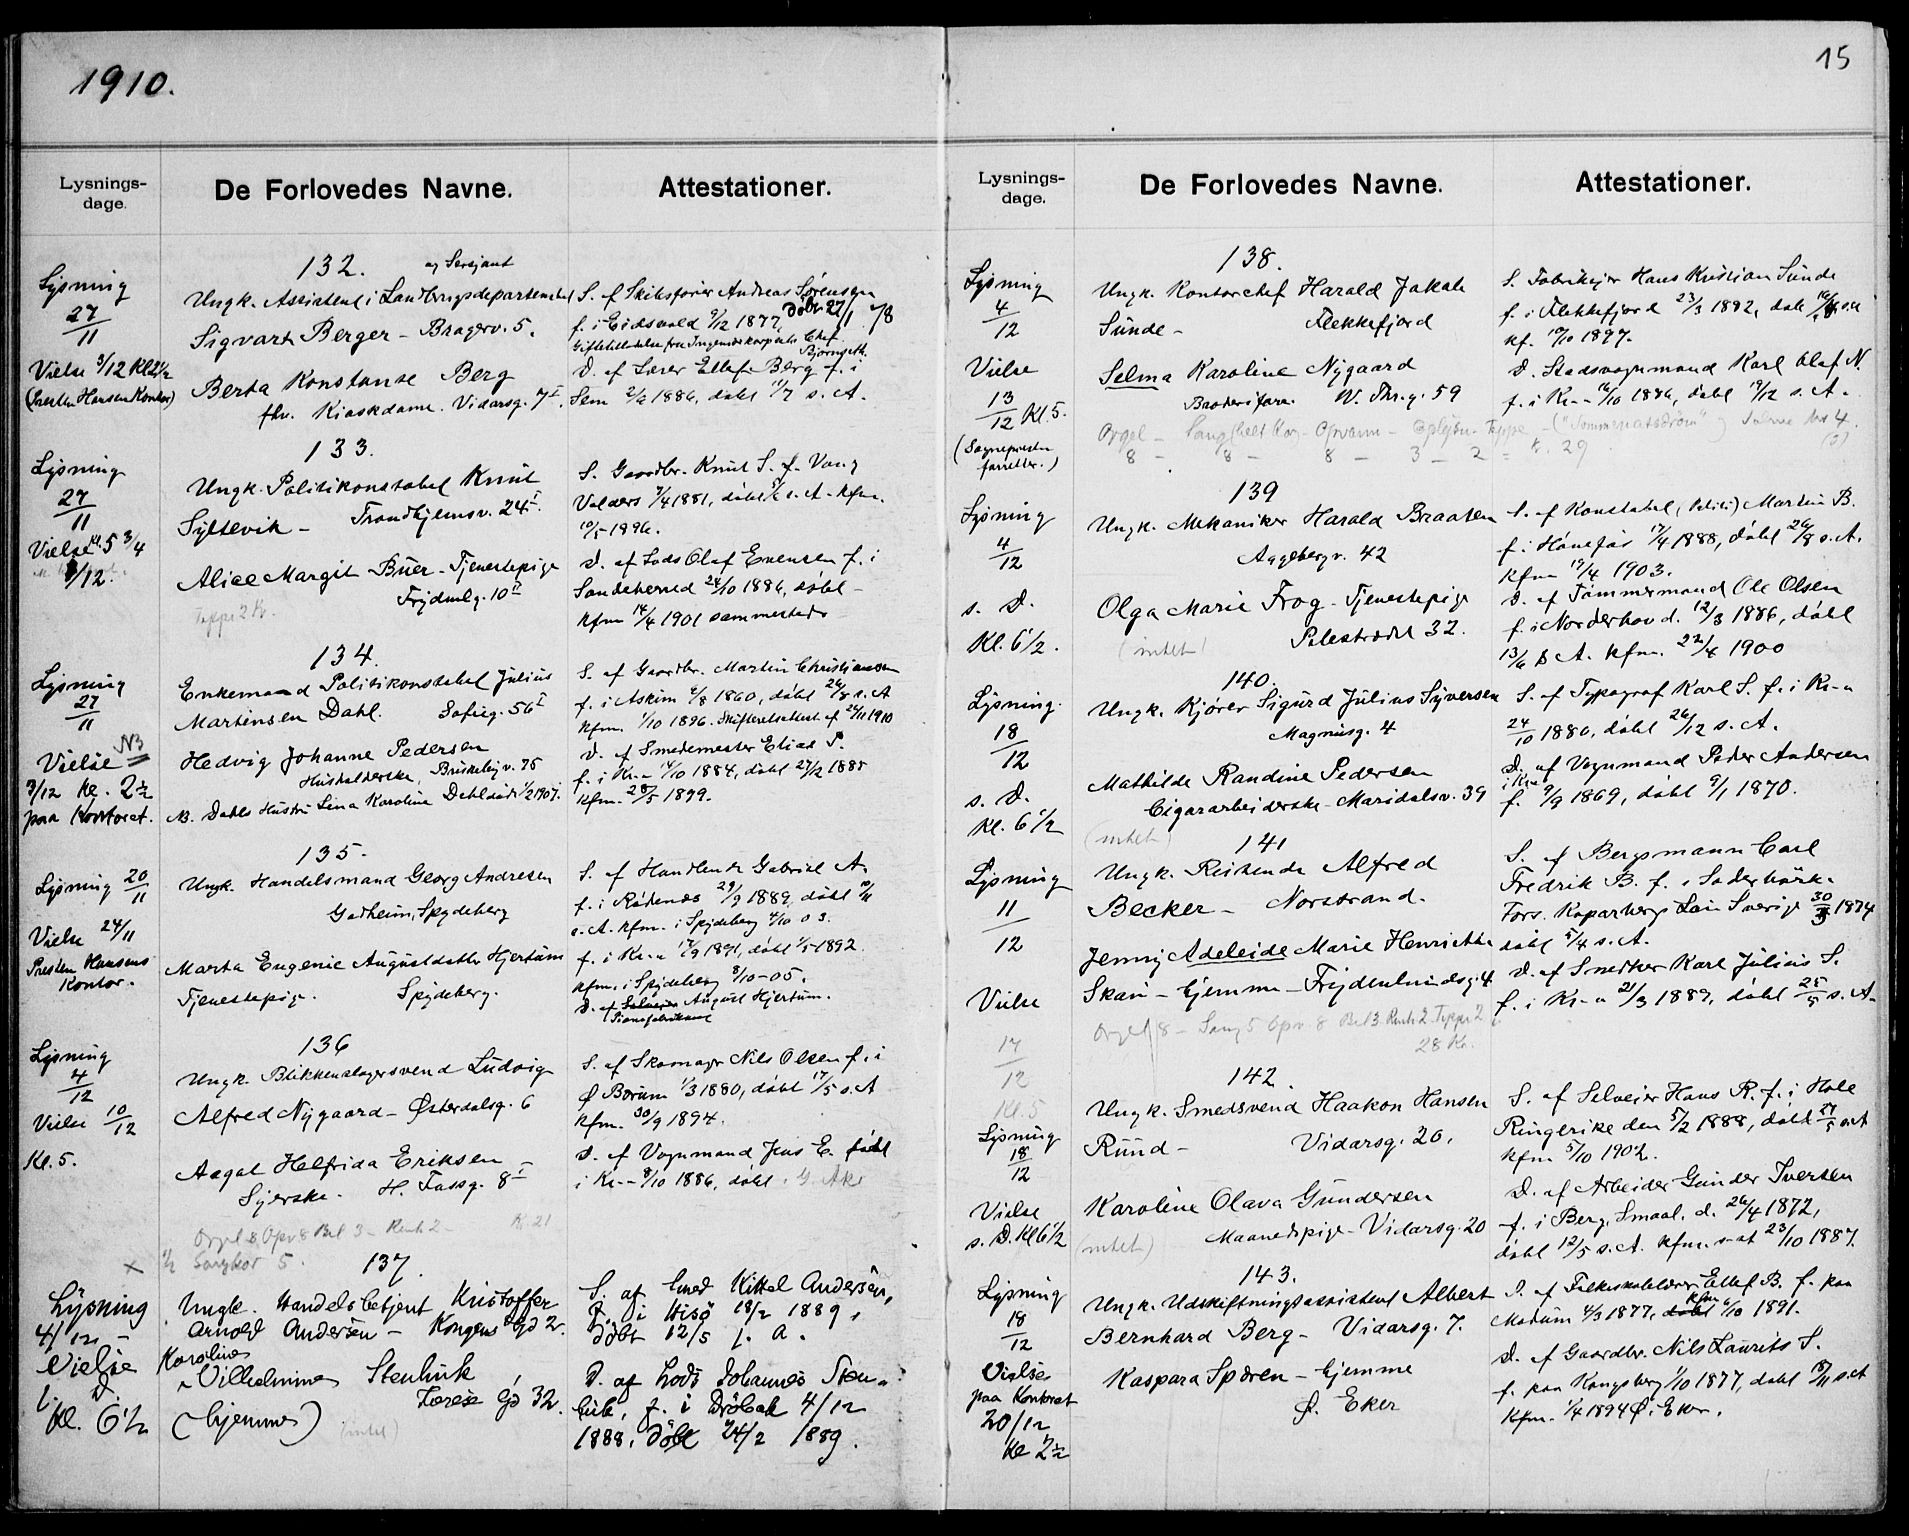 1910.
Lysnings-
dage.
De Forlovedes Navne.
Attestationer.
132.
og Sersjant
Lysning
27
11
Vielse 3/12 Kl 2 1/2
Ungk. Assistent i Landbrugsdepartementet
Sigvart Berger - Bragerv. 5.
Berta Konstanse Berg
fhv. Kioskdame. Vidarsg. 7 I.
S. af Skibsfører Andreas Sørensen
f. i Eidsvold 9/12 1877, døbt 27/1 78
D. af Lærer Ellef Berg f. i
Sem 2/6 1886, døbt 11/7 s. A.
133.
Lysning
27
11
Vielse Kl. 5 3/4
Ungk. Politikonstabel Knut
Syltevik - Trondhjemsv. 24 I.
Alice Margit Buer - Tjenestepige
Frydenlg. 10 II
Teppe 2 Kr.
S. Gaardbr. Knut S. f. Vang
Valders 7/4 1881, døbt s. A. Kfm.
10/5 1896.
D. af Lods Olaf Evensen f. i
Sandeherred 24/10 1886, døbt -
Kfm 14/4 1901 sammesteds
134.
Lysning
27
11
Vielse
9/12 kl. 2 1/2
paa Kontoret.
Enkemand Politikonstabel Julius
Martinsen Dahl. Sofieg. 56 I
Hedvig Johanne Pedersen
Husholderske, Briskebyv. 75
N. Dahls Hustru Lina Karoline Dahl død 1/2 1907.
S. af Gaardbr. Martin Christiansen
f. i Askim 6/8 1860, døbt 26/8 s. A
Kfm. 1/10 1896. Skifteretsattest af 24/11 1910
D. af Smedemester Elias P.
f. i Kr.a 14/10 1884, døbt 27/2 1885
Kfm. 28/5 1899.
135.
Lysning 20
11
Vielse 24/11
Presten Hansens
Kontor.
Ungk. Handelsmand Georg Andresen
Godheim, Spydeberg
Marta Eugenie Augustdatter Hjertum
Tjenestepige. Spydeberg.
S. af Handlende Gabriel A.
f. i Rødenes 29/9 1889, døbt 10/11
s. A. Kfm. i Spydeberg 4/10 03.
f. i Kr.a 17/9 1891, døbt 1/5 1892
Kfm. i Spydeberg 8/10-05.
D. af August Hjertum.
Pianofabrikant
136
Lysning
4
12
Vielse 10
12
Kl. 5.
Ungk. Blikkenslagersvend Ludvig
Alfred Nygaard - Østerdalsg. 6
Aagot Helfrida Eriksen
Syerske. H. Tassg. 8 I
Orgel 8 Opv 8 Bel 3 - Renh 2 - Kr 21
Sangkor 5.
S. af Skomager Nils Olsen f. i
Ø Bærum 1/3 1880, døbt 17/5 s. A
Kfm. 30/9 1894.
D. af Vognmand Jens E. født
i Kr.a 8/10 1886, døbt. G. Aker
137.
Lysning
4/12 -
Vielse
s. D.
Kl. 6 1/2
Ungk. Handelsbetjent Kristoffer
Arnold Andersen - Kongens Gd 2.
Karoline
Vilhelmine Stenbuk,
Terese Gd 32.
(hjemme)
(intet)
S. af Smed Kittel Andersen,
f. i Hisø 18/2 1889,
Døbt 12/5 s. A.
D. af Lods Johannes Sten-
buk, f. i Drøbak 4/12
1888, døbt 24/2 1889.
15
Lysnings-
dage.
De Forlovedes Navne.
Attestationer.
138.
Lysning
4
12
Vielse
13
12 Kl 5.
(Sognepresten
forretter.)
Ungk. Kontorchef Harald Jakob
Sunde - Flekkefjord
Selma Karoline Nygaard
W. Thr. g. 59
Orgel - Sang - Opvarm - Teppe
8 - 8 - 8 - 3 - 2 = Kr. 29
S. Fabrikejer Hans Kristian Sunde
f. i Flekkefjord 23/3 1882, døbt s. A
Kf. 10/10 1897.
D. Stadsvognmand Karl Olaf N.
f. i Kr.a 16/10 1886, døbt 19/12 s. A.
139
Lysning
4
12
s. D.
Kl. 6 1/2.
Ungk. Mekaniker Harald Braaten
Aagebergv. 42
Olga Marie Frog - Tjenestepige
(intet) Pilestrædet 32.
S. af Konstabel (Politi) Martin B.
f. i Hønefos 17/4 1888, døbt 26/8 s. A.
Kfm 19/4 1903.
D. af Tømmermand Ole Olsen
f. i Norderhov d. 12/3 1886, døbt
13/6 s A. Kfm. 22/4 1900
140.
Lysning.
18
12
s. D.
Kl. 6 1/2
Ungk. Kjører Sigurd Julius Syversen
Magnusg. 4
Mathilde Randine Pedersen
Cigararbeiderske - Maridalsv. 39
(intet)
S. af Typograf Karl S. f. i Kr.a
24
10 1880, døbt 26/12 s. A.
D. af Vognmand Peder Andersen
i Kr.a
f. 9/9 1869, døbt 9/1 1870.
141
Lysning
11
12
Vielse
17
12
Kl. 5
Ungk. Reisende Alfred
Becker - Norstrand.
Jenny Adeleide Marie Henriette
Skari - hjemme - Frydenlundsg. 4
Orgel 8 - Sang 5 Opv 8 Bel 3 Renh 2 Teppe 2
28 Kr.
S. af Bergsmann Carl
Fredrik B. f. i Søderbärke
Fors. Koparbergs Län Sverige 30/3 1874
døbt 5/4 s. A.
D. af Snedker Karl Julius S.
f. i Kr.a 21/3 1889, døbt 25/5 s. A.
142.
Lysning
18
12
Vielse
s. D. Kl 6 1/2
Ungk. Smedsvend Haakon Hansen
Ruud - Vidarsg. 20.
Karoline Olava Gundersen
(intet) Maanedspige - Vidarsg. 20
S. af Selveier Hans R. f. i Hole
Ringerike den 5/2 1888, døbt 27/5 s. A
Kfm 5/10 1902.
D. af Arbeider Gunder Iversen
f. i Berg, Smaal. d. 26/4 1872,
døbt 12/5 s. A. Kfm. s. st 23/10 1887.
143.
Lysning
18
12
Vielse
paa Kontoret
20/12
Kl 2 1/2
Ungk. Udskiftningsassistent Albert
Bernhard Berg - Vidarsg. 7.
Kaspara Spæren - hjemme
Ø. Eker
S. af Folkeskolelærer Ellef B. f. paa
Modum 4/9 1877, Kfm 4/10 1891.
D. af Gaardbr. Nils Laurits S.
f. paa Kongsberg 1/10 1877, døbt 18/11 s. A
Kfm. 1/4 1894 Ø. Eker.